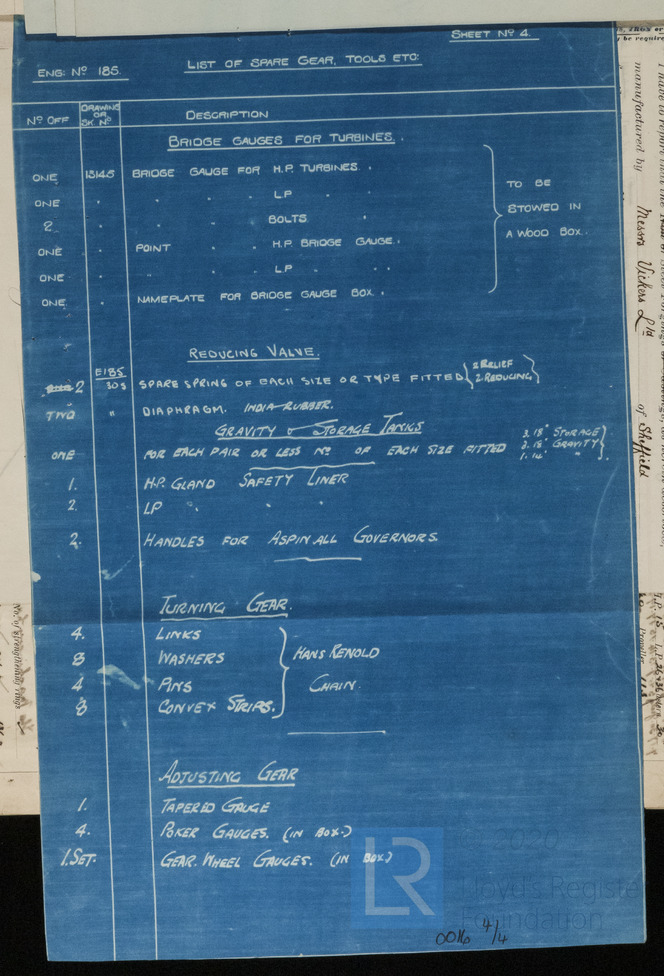 SHEET Nº 4.
ENG: Nº 185.
LIST OF SPARE GEAR, TOOLS ETC:
Nº OFF
DRAWING OR SK. Nº
DESCRIPTION
BRIDGE GAUGES FOR TURBINES.
ONE 13145 BRIDGE GAUGE FOR H.P. TURBINES.
ONE " " " " LP "
2 " " " BOLTS "
ONE " POINT " H.P. BRIDGE GAUGE.
ONE " " " LP " "
ONE " NAMEPLATE FOR BRIDGE GAUGE BOX.
TO BE
STOWED IN
A WOOD BOX.
REDUCING VALVE.
E185
2 30S SPARE SPRING OF EACH SIZE OR TYPE FITTED { 2 RELIEF
2 REDUCING }
TWO " DIAPHRAGM. INDIA-RUBBER.
GRAVITY & STORAGE TANKS
ONE FOR EACH PAIR OR LESS Nº OF EACH SIZE FITTED
3. 18" STORAGE
2. 18" GRAVITY
1. 14" "
1. H.P. GLAND SAFETY LINER
2. LP " " "
2. HANDLES FOR ASPINALL GOVERNORS.
TURNING GEAR.
4. LINKS
8 WASHERS
4 PINS
8 CONVEX STRIPS.
HANS RENOLD
CHAIN.
ADJUSTING GEAR
1. TAPERED GAUGE
4. POKER GAUGES. (IN BOX.)
1. SET. GEAR WHEEL GAUGES. (IN BOX)
LR
2020
Lloyd's Register
Foundation
0016 4/4
manufactured by Messrs Vickers Ltd of Sheffield
No. of strengthening rings